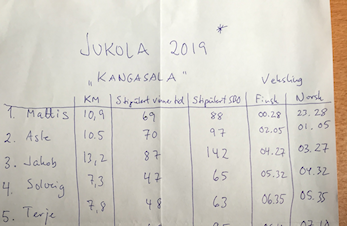 JUKOLA 2019 *
„KANGASALA"
Veksling
KM Stipulert vinnertid Stipulert SDO Finsk Norsk
1. Mattis 10,9 69 88 00.28 23.28
2. Asle 10.5 70 97 02.05 01.05
3. Jakob 13,2 87 142 04.27 03.27
4. Solveig 7,3 47 65 05.32 04.32
5. Terje 7,8 48 63 06.35 05.35